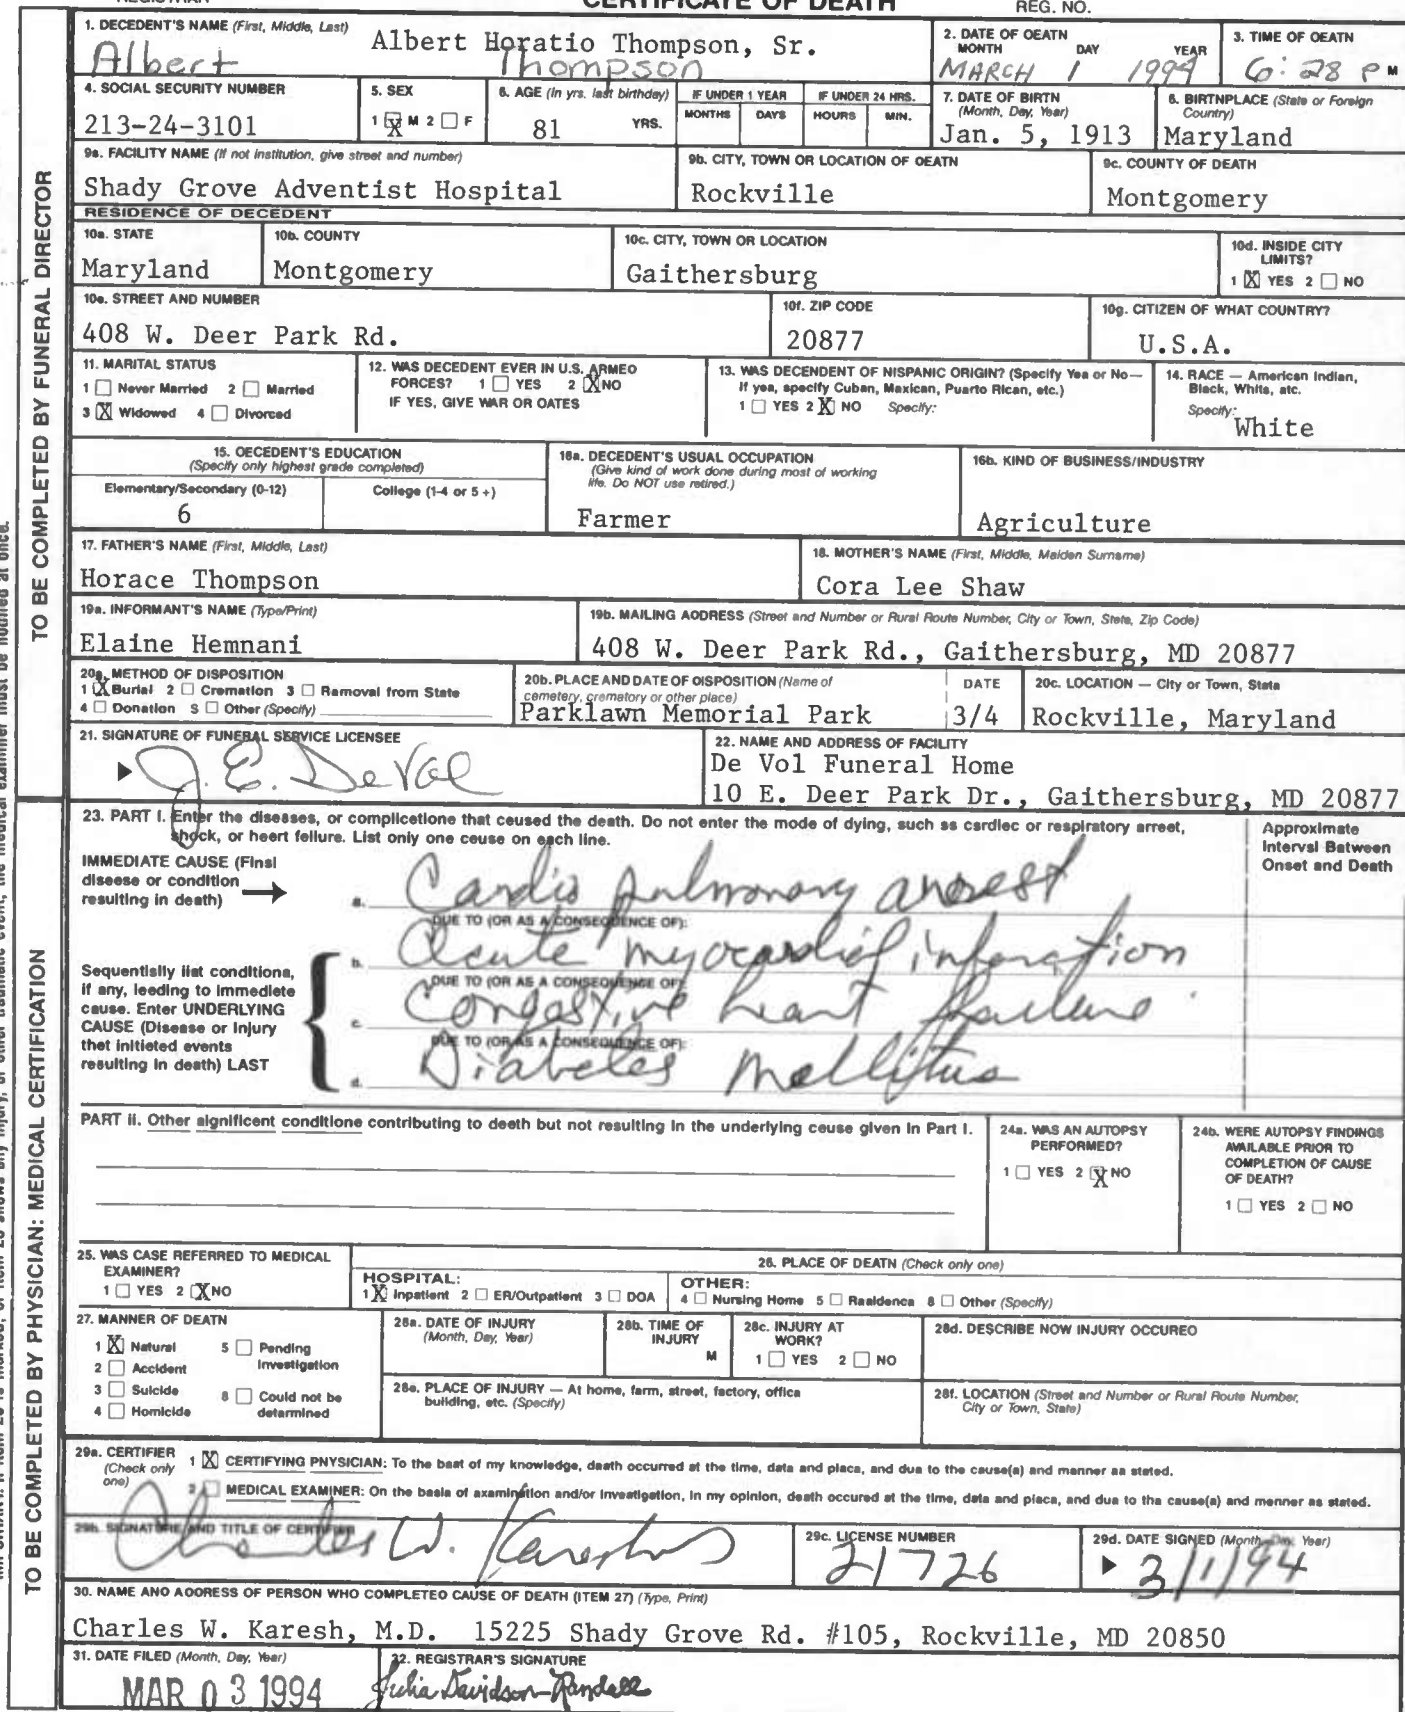 CERTIFICATE OF DEATH
REGISTRAR
REG. NO.
TO BE COMPLETED BY FUNERAL DIRECTOR
1. DECEDENT'S NAME (First, Middle, Last)
Albert Horatio Thompson, Sr.
Albert Thompson
2. DATE OF DEATH
MONTH DAY YEAR
MARCH 1 1994
3. TIME OF DEATH
6:28 P M
4. SOCIAL SECURITY NUMBER
213-24-3101
5. SEX
1 X M 2 □ F
6. AGE (In yrs. last birthday)
81 YRS.
IF UNDER 1 YEAR
MONTHS DAYS
IF UNDER 24 HRS.
HOURS MIN.
7. DATE OF BIRTH
(Month, Day, Year)
Jan. 5, 1913
8. BIRTHPLACE (State or Foreign
Country)
Maryland
9a. FACILITY NAME (If not institution, give street and number)
Shady Grove Adventist Hospital
9b. CITY, TOWN OR LOCATION OF DEATH
Rockville
9c. COUNTY OF DEATH
Montgomery
RESIDENCE OF DECEDENT
10a. STATE
Maryland
10b. COUNTY
Montgomery
10c. CITY, TOWN OR LOCATION
Gaithersburg
10d. INSIDE CITY
LIMITS?
1 X YES 2 □ NO
10e. STREET AND NUMBER
408 W. Deer Park Rd.
10f. ZIP CODE
20877
10g. CITIZEN OF WHAT COUNTRY?
U.S.A.
11. MARITAL STATUS
1 □ Never Married 2 □ Married
3 X Widowed 4 □ Divorced
12. WAS DECEDENT EVER IN U.S. ARMED
FORCES? 1 □ YES 2 X NO
IF YES, GIVE WAR OR DATES
13. WAS DECENDENT OF HISPANIC ORIGIN? (Specify Yes or No—
If yes, specify Cuban, Mexican, Puerto Rican, etc.)
1 □ YES 2 X NO Specify:
14. RACE — American Indian,
Black, White, etc.
Specify:
White
15. DECEDENT'S EDUCATION
(Specify only highest grade completed)
Elementary/Secondary (0-12) College (1-4 or 5 +)
6
16a. DECEDENT'S USUAL OCCUPATION
(Give kind of work done during most of working
life. Do NOT use retired.)
Farmer
16b. KIND OF BUSINESS/INDUSTRY
Agriculture
17. FATHER'S NAME (First, Middle, Last)
Horace Thompson
18. MOTHER'S NAME (First, Middle, Maiden Surname)
Cora Lee Shaw
19a. INFORMANT'S NAME (Type/Print)
Elaine Hemnani
19b. MAILING ADDRESS (Street and Number or Rural Route Number, City or Town, State, Zip Code)
408 W. Deer Park Rd., Gaithersburg, MD 20877
20a. METHOD OF DISPOSITION
1 X Burial 2 □ Cremation 3 □ Removal from State
4 □ Donation 5 □ Other (Specify)
20b. PLACE AND DATE OF DISPOSITION (Name of
cemetery, crematory or other place)
Parklawn Memorial Park
DATE
3/4
20c. LOCATION — City or Town, State
Rockville, Maryland
21. SIGNATURE OF FUNERAL SERVICE LICENSEE
J. E. DeVol
22. NAME AND ADDRESS OF FACILITY
De Vol Funeral Home
10 E. Deer Park Dr., Gaithersburg, MD 20877
TO BE COMPLETED BY PHYSICIAN: MEDICAL CERTIFICATION
23. PART I. Enter the diseases, or complications that caused the death. Do not enter the mode of dying, such as cardiac or respiratory arrest,
shock, or heart failure. List only one cause on each line.
Approximate
Interval Between
Onset and Death
IMMEDIATE CAUSE (Final
disease or condition
resulting in death)
a. Cardio pulmonary arrest
DUE TO (OR AS A CONSEQUENCE OF):
b. Acute myocardial infarction
DUE TO (OR AS A CONSEQUENCE OF):
c. Congestive heart failure
DUE TO (OR AS A CONSEQUENCE OF):
d. Diabetes mellitus
Sequentially list conditions,
if any, leading to immediate
cause. Enter UNDERLYING
CAUSE (Disease or injury
that initiated events
resulting in death) LAST
PART II. Other significant conditions contributing to death but not resulting in the underlying cause given in Part I.
24a. WAS AN AUTOPSY
PERFORMED?
1 □ YES 2 X NO
24b. WERE AUTOPSY FINDINGS
AVAILABLE PRIOR TO
COMPLETION OF CAUSE
OF DEATH?
1 □ YES 2 □ NO
25. WAS CASE REFERRED TO MEDICAL
EXAMINER?
1 □ YES 2 X NO
26. PLACE OF DEATH (Check only one)
HOSPITAL:
1 X Inpatient 2 □ ER/Outpatient 3 □ DOA
OTHER:
4 □ Nursing Home 5 □ Residence 6 □ Other (Specify)
27. MANNER OF DEATH
1 X Natural 5 □ Pending
Investigation
2 □ Accident
3 □ Suicide 6 □ Could not be
determined
4 □ Homicide
28a. DATE OF INJURY
(Month, Day, Year)
28b. TIME OF
INJURY
M
28c. INJURY AT
WORK?
1 □ YES 2 □ NO
28d. DESCRIBE HOW INJURY OCCURED
28e. PLACE OF INJURY — At home, farm, street, factory, office
building, etc. (Specify)
28f. LOCATION (Street and Number or Rural Route Number,
City or Town, State)
29a. CERTIFIER
(Check only
one)
1 X CERTIFYING PHYSICIAN: To the best of my knowledge, death occurred at the time, date and place, and due to the cause(s) and manner as stated.
2 □ MEDICAL EXAMINER: On the basis of examination and/or investigation, in my opinion, death occured at the time, date and place, and due to the cause(s) and manner as stated.
29b. SIGNATURE AND TITLE OF CERTIFIER
Charles W. Karesh
29c. LICENSE NUMBER
21726
29d. DATE SIGNED (Month, Day, Year)
3/1/94
30. NAME AND ADDRESS OF PERSON WHO COMPLETED CAUSE OF DEATH (ITEM 27) (Type, Print)
Charles W. Karesh, M.D. 15225 Shady Grove Rd. #105, Rockville, MD 20850
31. DATE FILED (Month, Day, Year)
MAR 03 1994
32. REGISTRAR'S SIGNATURE
Julia Davidson-Randall